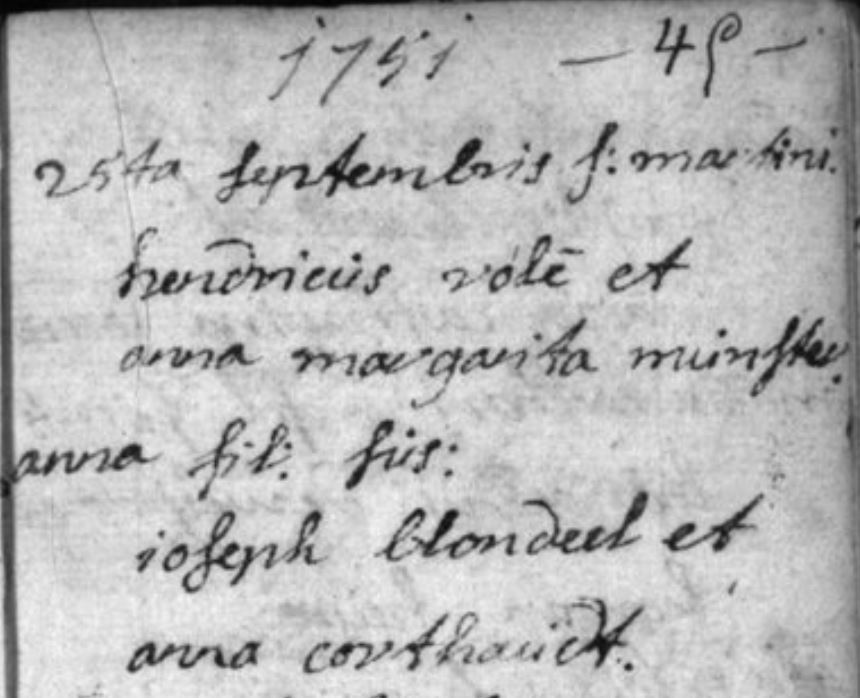 1751 - 45 -
25ta septembris s: martini.
hendricus volē et
anna margarita munster.
anna fil: sus:
ioseph blondeel et
anna corthaudt.